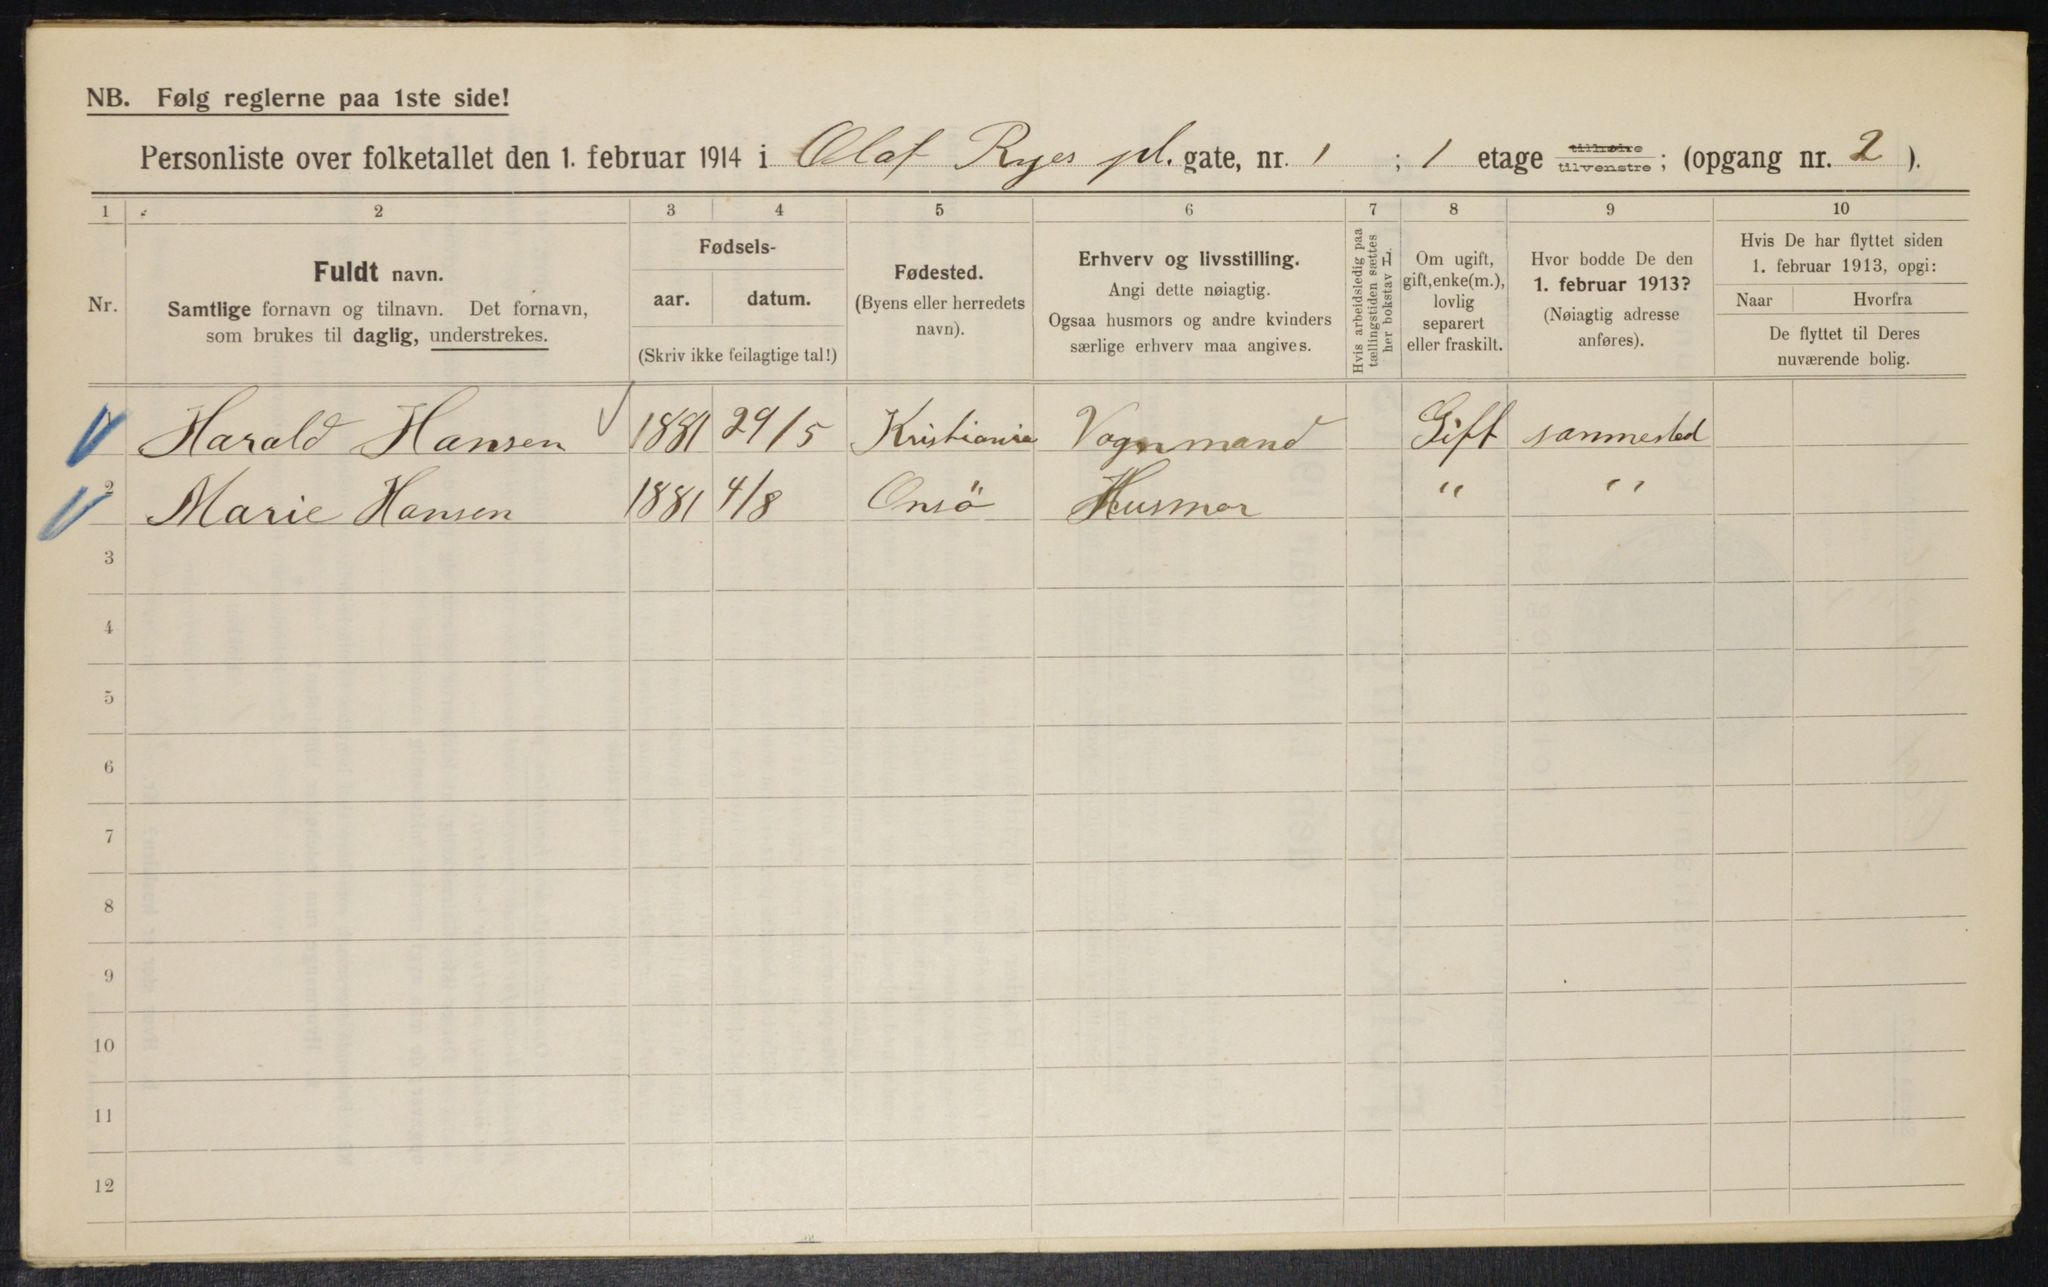 NB. Følg reglerne paa 1ste side!
Personliste over folketallet den 1. februar 1914 i Olaf Ryes pl. gate, nr. 1 ; 1 etage tilhøire tilvenstre ; (opgang nr. 2 ).
1 2 3 4 5 6 7 8 9 10
Nr.
Fuldt navn.
Samtlige fornavn og tilnavn. Det fornavn,
som brukes til daglig, understrekes.
Fødsels-
aar. datum.
(Skriv ikke feilagtige tal!)
Fødested.
(Byens eller herredets
navn).
Erhverv og livsstilling.
Angi dette nøiagtig.
Ogsaa husmors og andre kvinders
særlige erhverv maa angives.
Hvis arbeidsledig paa
tællingstiden sættes
her bokstav L.
Om ugift,
gift, enke(m.),
lovlig
separert
eller fraskilt.
Hvor bodde De den
1. februar 1913?
(Nøiagtig adresse
anføres).
Hvis De har flyttet siden
1. februar 1913, opgi:
Naar Hvorfra
De flyttet til Deres
nuværende bolig.
Harald Hansen 1881 29/5 Kristiania Vognmand Gift sammested
2 Marie Hansen 1881 4/8 Onsö Husmor " "
3
4
5
6
7
8
9
10
11
12